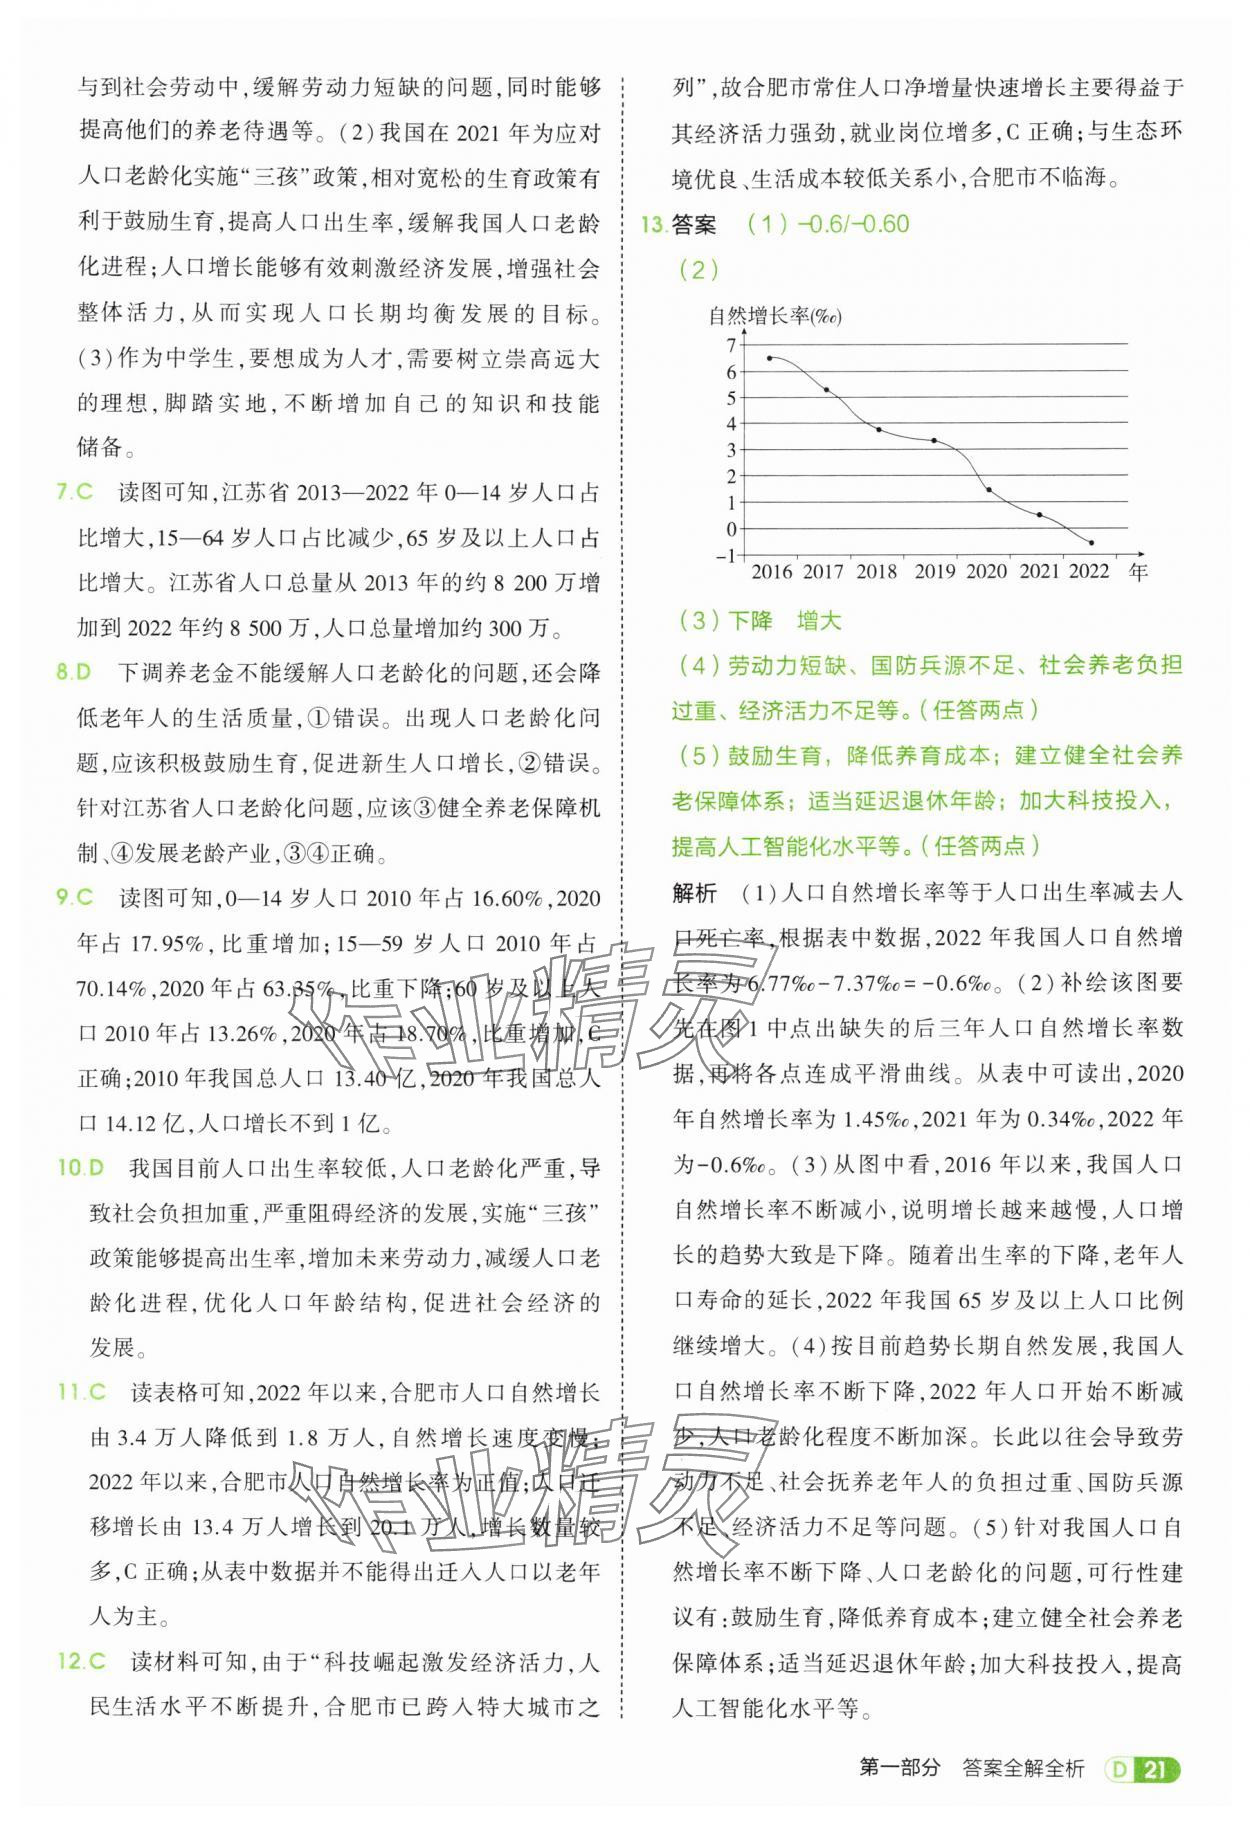 与到社会劳动中,缓解劳动力短缺的问题,同时能够
提高他们的养老待遇等。(2)我国在2021年为应对
人口老龄化实施“三孩”政策,相对宽松的生育政策有
利于鼓励生育,提高人口出生率,缓解我国人口老龄
化进程;人口增长能够有效刺激经济发展,增强社会
整体活力,从而实现人口长期均衡发展的目标。
(3)作为中学生,要想成为人才,需要树立崇高远大
的理想,脚踏实地,不断增加自己的知识和技能
储备。
7.C 读图可知,江苏省2013—2022年0—14岁人口占
比增大,15—64岁人口占比减少,65岁及以上人口占
比增大。江苏省人口总量从2013年的约8 200万增
加到2022年约8 500万,人口总量增加约300万。
8.D 下调养老金不能缓解人口老龄化的问题,还会降
低老年人的生活质量,①错误。出现人口老龄化问
题,应该积极鼓励生育,促进新生人口增长,②错误。
针对江苏省人口老龄化问题,应该③健全养老保障机
制、④发展老龄产业,③④正确。
9.C 读图可知,0—14岁人口2010年占16.60%,2020
年占17.95%,比重增加;15—59岁人口2010年占
70.14%,2020年占63.35%,比重下降;60岁及以上人
口2010年占13.26%,2020年占18.70%,比重增加,C
正确;2010年我国总人口13.40亿,2020年我国总人
口14.12亿,人口增长不到1亿。
10.D 我国目前人口出生率较低,人口老龄化严重,导
致社会负担加重,严重阻碍经济的发展,实施“三孩”
政策能够提高出生率,增加未来劳动力,减缓人口老
龄化进程,优化人口年龄结构,促进社会经济的
发展。
11.C 读表格可知,2022年以来,合肥市人口自然增长
由3.4万人降低到1.8万人,自然增长速度变慢;
2022年以来,合肥市人口自然增长率为正值;人口迁
移增长由13.4万人增长到20.1万人,增长数量较
多,C正确;从表中数据并不能得出迁入人口以老年
人为主。
12.C 读材料可知,由于“科技崛起激发经济活力,人
民生活水平不断提升,合肥市已跨入特大城市之
列”,故合肥市常住人口净增量快速增长主要得益于
其经济活力强劲,就业岗位增多,C正确;与生态环
境优良、生活成本较低关系小,合肥市不临海。
13.答案 (1)-0.6/-0.60
(2)
自然增长率(‰)
7
6
5
4
3
2
1
0
-1
2016 2017 2018 2019 2020 2021 2022 年
(3)下降 增大
(4)劳动力短缺、国防兵源不足、社会养老负担
过重、经济活力不足等。(任答两点)
(5)鼓励生育,降低养育成本;建立健全社会养
老保障体系;适当延迟退休年龄;加大科技投入,
提高人工智能化水平等。(任答两点)
解析 (1)人口自然增长率等于人口出生率减去人
口死亡率,根据表中数据,2022年我国人口自然增
长率为6.77‰-7.37‰=-0.6‰。(2)补绘该图要
先在图1中点出缺失的后三年人口自然增长率数
据,再将各点连成平滑曲线。从表中可读出,2020
年自然增长率为1.45‰,2021年为0.34‰,2022年
为-0.6‰。(3)从图中看,2016年以来,我国人口
自然增长率不断减小,说明增长越来越慢,人口增
长的趋势大致是下降。随着出生率的下降,老年人
口寿命的延长,2022年我国65岁及以上人口比例
继续增大。(4)按目前趋势长期自然发展,我国人
口自然增长率不断下降,2022年人口开始不断减
少,人口老龄化程度不断加深。长此以往会导致劳
动力不足、社会抚养老年人的负担过重、国防兵源
不足、经济活力不足等问题。(5)针对我国人口自
然增长率不断下降、人口老龄化的问题,可行性建
议有:鼓励生育,降低养育成本;建立健全社会养老
保障体系;适当延迟退休年龄;加大科技投入,提高
人工智能化水平等。
作业精灵
作业精灵
第一部分 答案全解全析 D 21